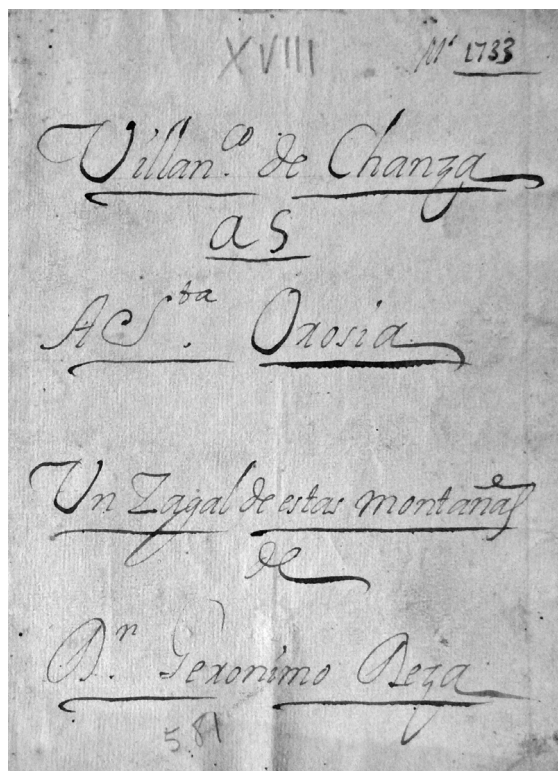 XVIII
1733
Villan.co de Chanza
a 5
A S.ta Orosia
Un Zagal de estas montañas
de
D.n Geronimo Deza
581